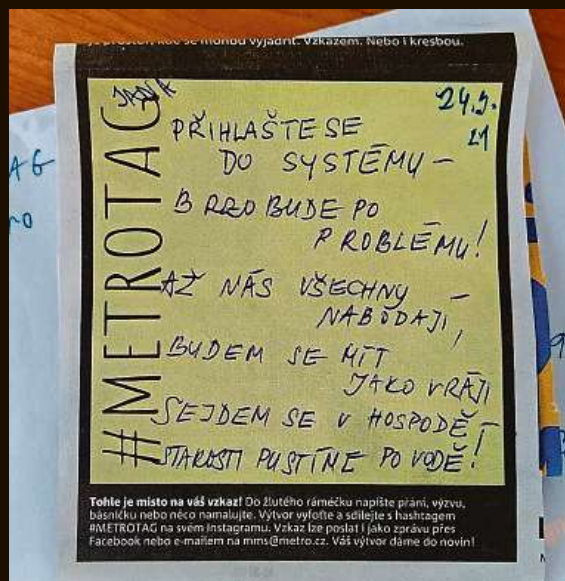 je prostor, kde se mohou vyjádřit. Vzkazem. Nebo i kresbou.
#METROTAG
24.5.
21
PŘIHLAŠTE SE
DO SYSTÉMU –
BRZO BUDE PO
PROBLÉMU!
AŽ NÁS VŠECHNY –
NABODAJÍ,
BUDEM SE MÍT
JAKO V RÁJI
SEJDEM SE V HOSPODĚ –
STAROSTI PUSTÍME PO VODĚ!
Tohle je místo na váš vzkaz! Do žlutého rámečku napište přání, výzvu,
básničku nebo něco namalujte. Výtvor vyfoťte a sdílejte s hashtagem
#METROTAG na svém Instagramu. Vzkaz lze poslat i jako zprávu přes
Facebook nebo e-mailem na mms@metro.cz. Váš výtvor dáme do novin!